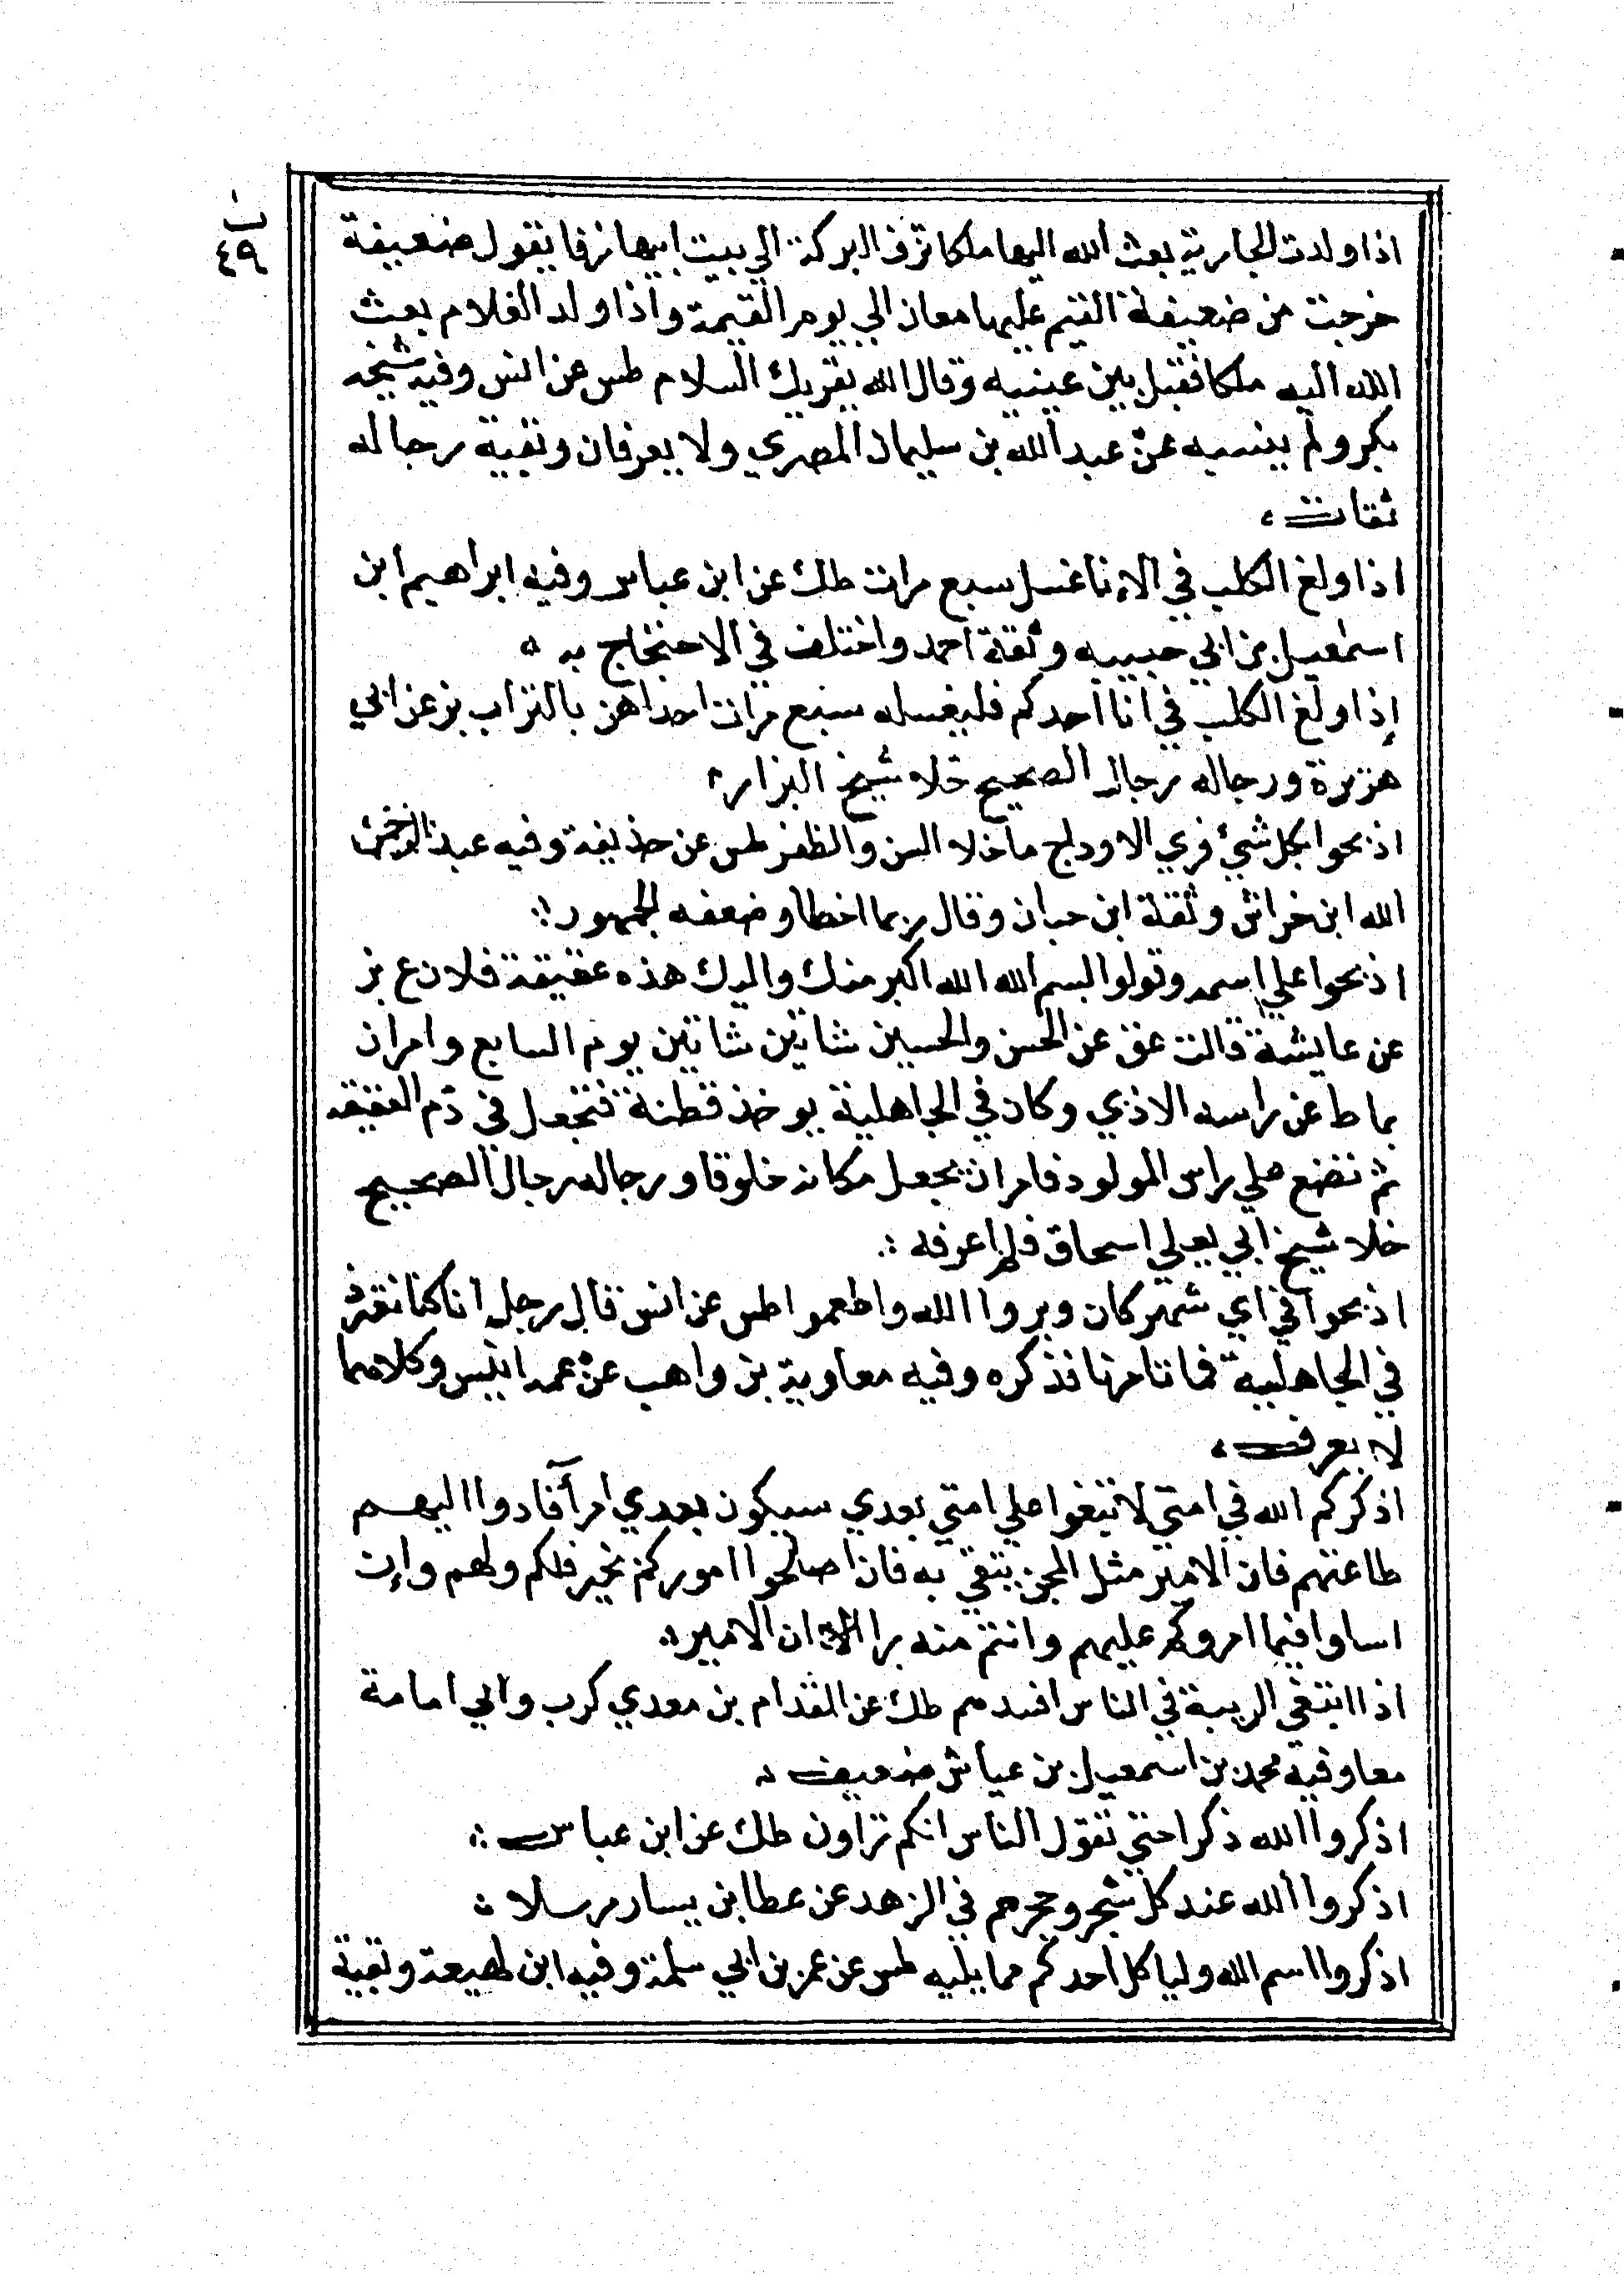 ب
٤٩
اذا ولدت الجارية بعث الله اليها ملكا تزف البركة الي بيت ابيها زفا يقول ضعيفة
خرجت من ضعيفة القيم عليها معان الي يوم القيمة واذا ولد الغلام بعث
الله اليه ملكا فقبل بين عينيه وقال الله يقريك السلام طس عن انس وفيه شيخه
بكر ولم ينسبه عن عبد الله بن سليمان المصري ولا يعرفان وبقية رجاله
ثقات
اذا ولغ الكلب في الاناء غسل سبع مرات طك عن ابن عباس وفيه ابراهيم ابن
اسمعيل بن ابي حبيبه وثقة احمد واختلف في الاحتجاج به
إذا ولغ الكلب في انا احدكم فليغسله سبع مرات احداهن بالتراب بز عن ابي
هريرة ورجاله رجال الصحيح خلا شيخ البزار
اذبحوا بكل شيء فري الاوداج ماخلا السن والظفر طس عن حذيفة وفيه عبد
الله ابن خراش وثقة ابن حبان وقال ربما اخطا وضعفه الجمهور
اذبحوا علي اسمه وقولوا بسم الله الله اكبر منك واليك هذه عقيقة فلان ع بز
عن عايشة قالت عق عن الحسن والحسين شاتين شاتين يوم السابع وامر ان
يماط عن راسه الاذي وكان في الجاهلية يوخذ قطنة فتجعل في دم العقيقه
ثم تضع علي راس المولود فامر ان يجعل مكانه خلوقا ورجاله رجال الصحيح
خلا شيخ ابي يعلي اسحاق فلم اعرفه
اذبحوا في اي شهر كان وبروا الله واطعموا طس عن انس قال رجل انا كنا نعتر
في الجاهلية فما تامرنا فذكره وفيه معاوية بن واهب عن عمه انيس وكلاهما
لا يعرف
اذكركم الله في امتي لا تبغوا علي امتي بعدي سيكون بعدي امرآ فادوا اليهم
طاعتهم فان الامير مثل المجن يتقي به فان اصلحوا اموركم بخير فلكم ولهم وإن
اساوا فيما امروكم عليهم وانتم منه برا ان الامير
اذا ابتغي الريبة في الناس افسدهم طك عن المقدام بن معدي كرب وابي امامة
معا وفيه محمد بن اسمعيل بن عياش ضعيف
اذكروا الله ذكرا حتي تقول الناس انكم تراون طك عن ابن عباس
اذكروا الله عند كل شجر وحجر حم في الزهد عن عطا بن يسار مرسلا
اذكروا اسم الله ولياكل احدكم مما يليه طس عن عمر بن ابي سلمة وفيه ابن لهيعة وبقية